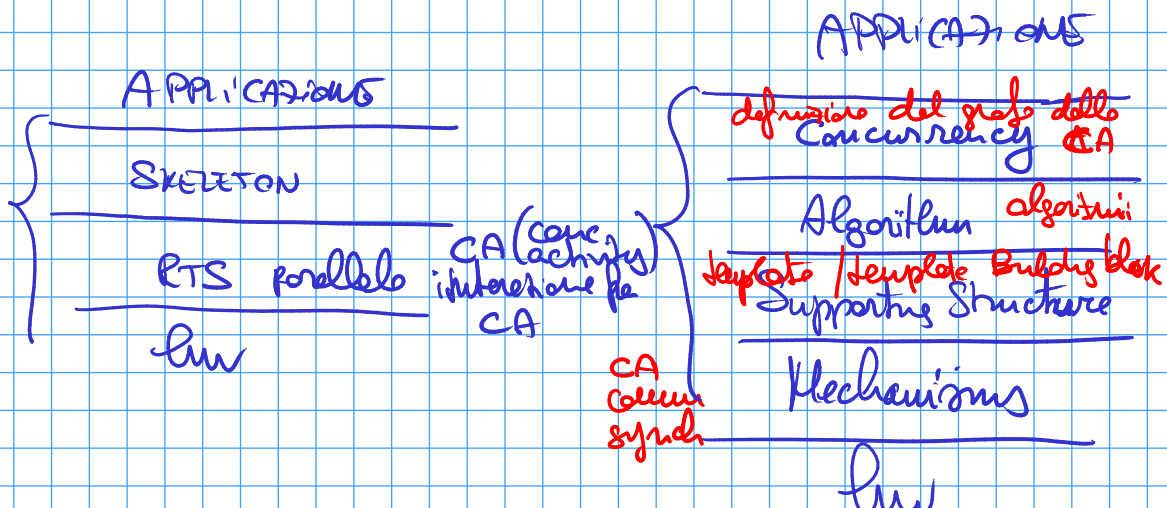 APPLICAZIONE
SKELETON
RTS parallelo
hw
CA (conc activity)
interazione fra
CA
APPLICAZIONE
definizione del grafo delle CA
Concurrency
Algorithm algoritmi
template / template Building block
Supporting Structure
Mechanisms
CA
comm
synch
hw